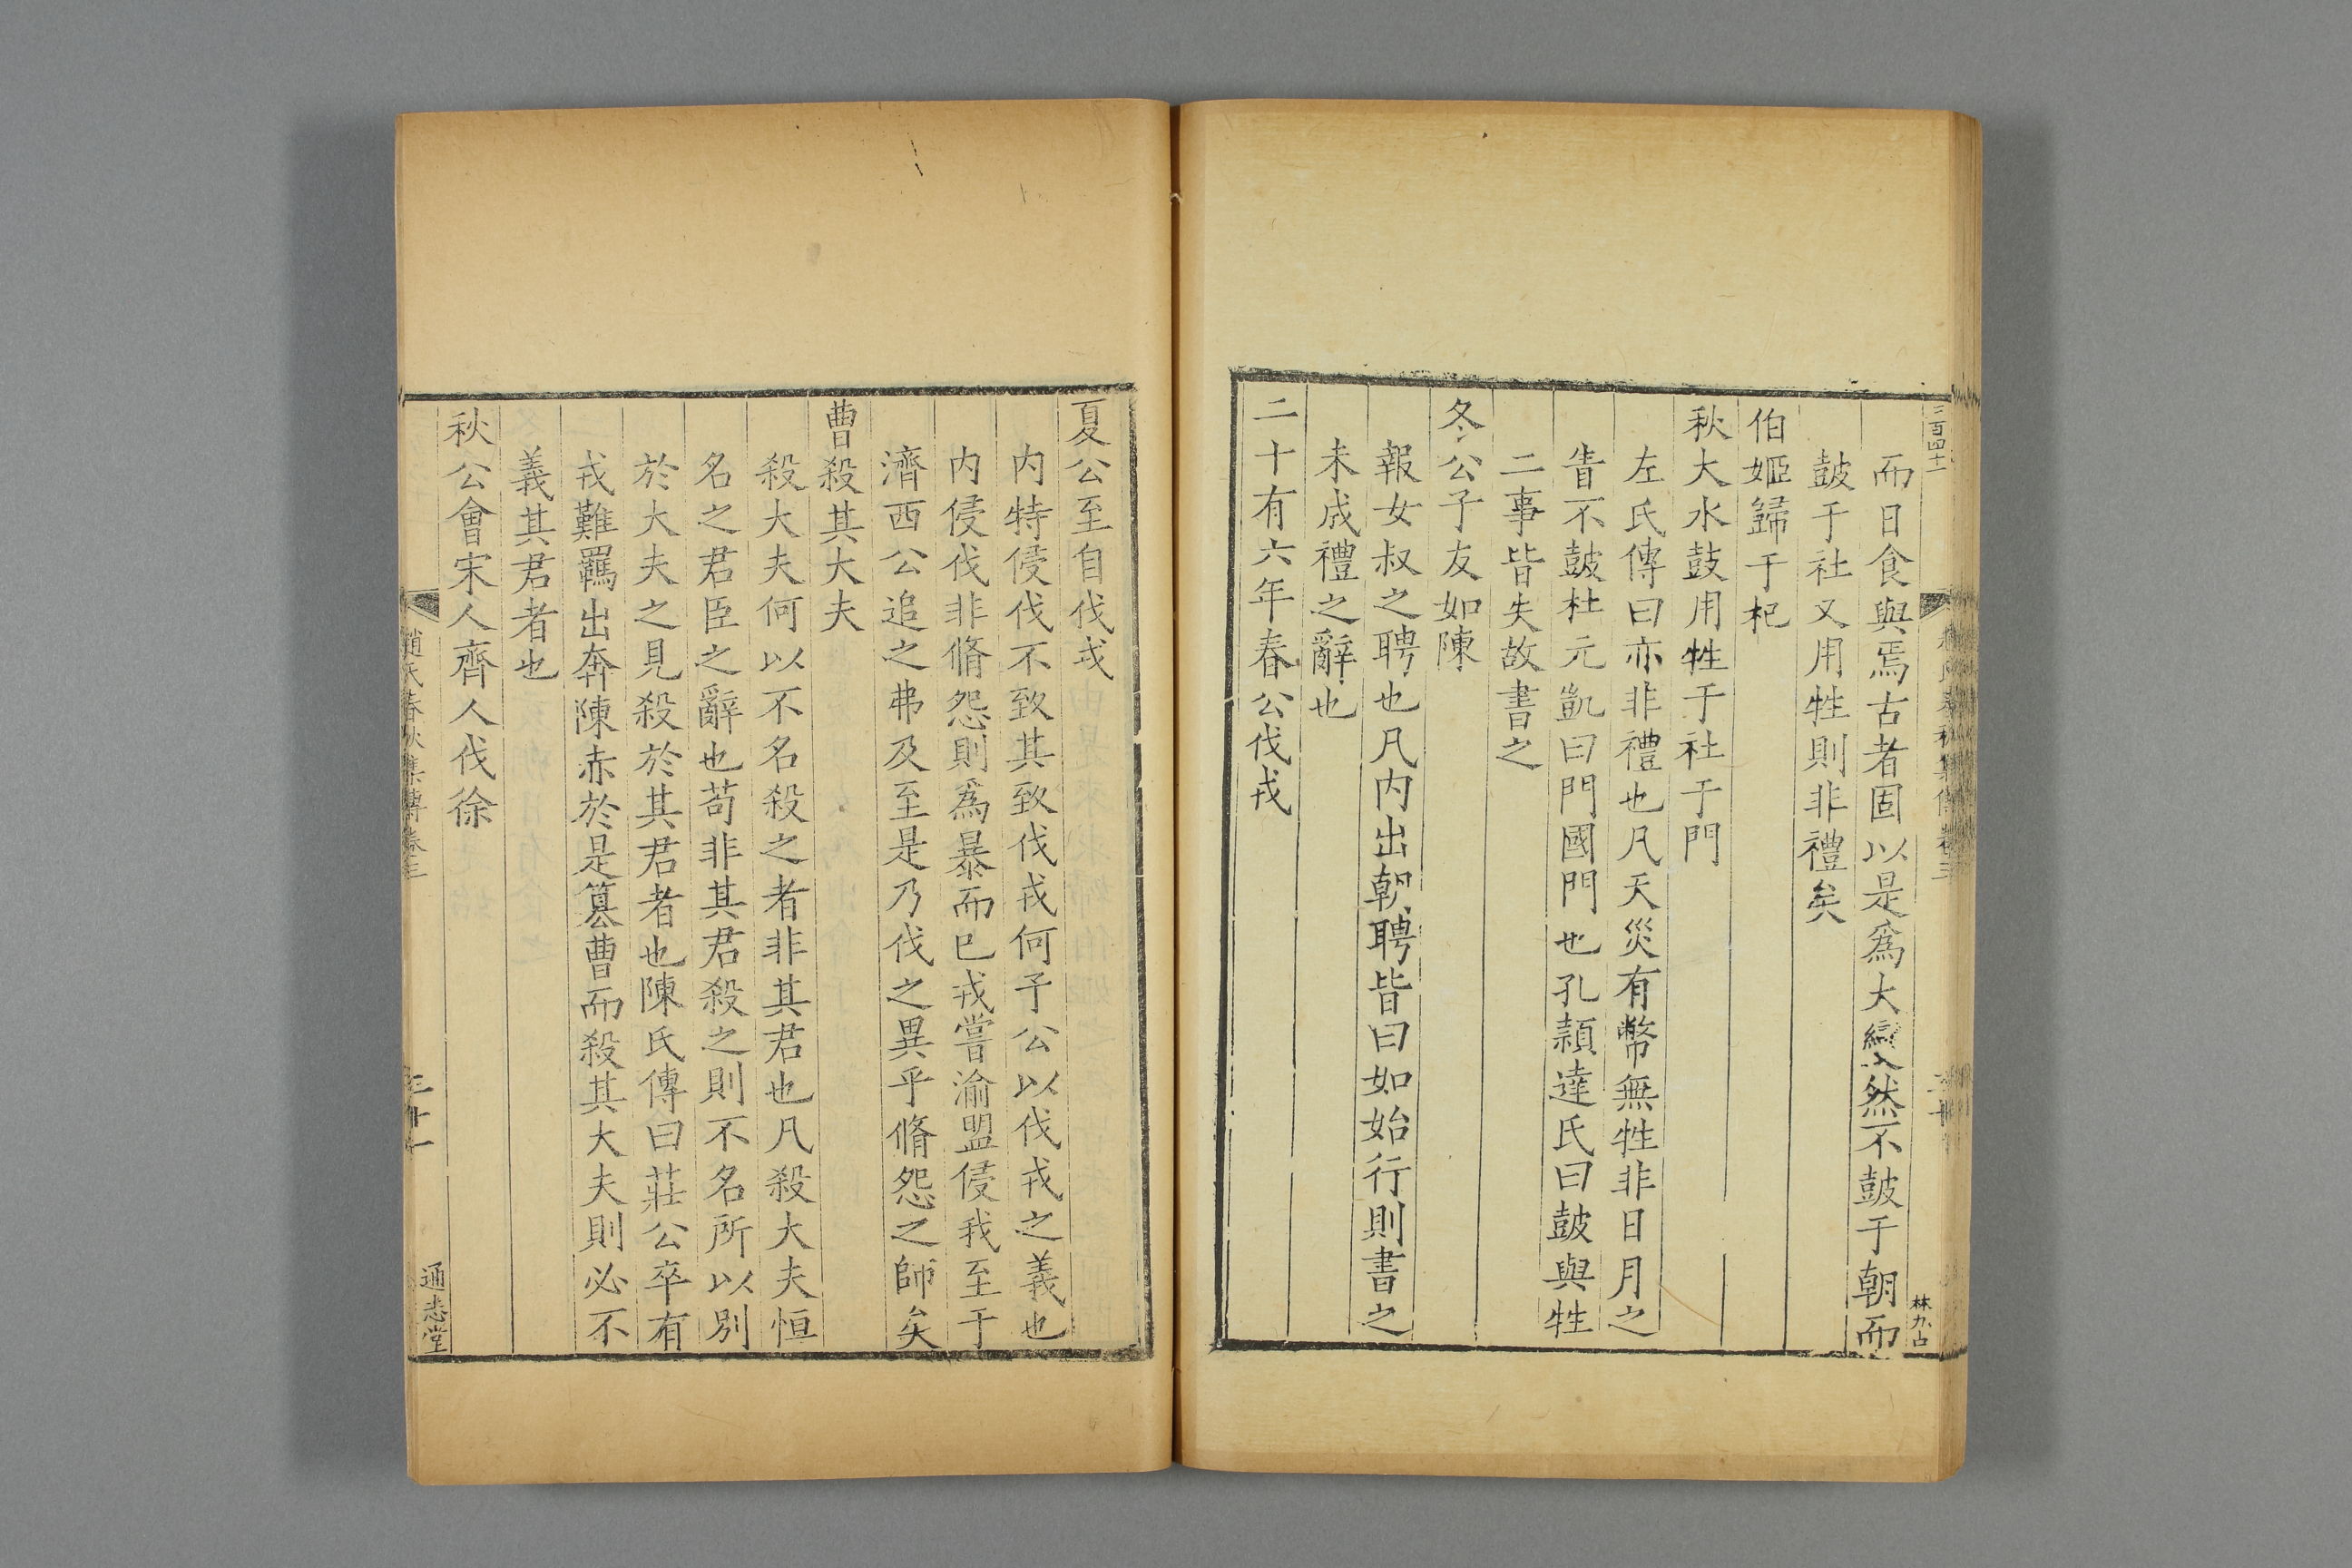 二百四十
而日食與焉古者固以是爲大變然不鼓于朝而
鼓于社又用牲則非禮矣
伯姬歸于杞
秋大水鼓用牲于社于門
左氏傳曰亦非禮也凡天災有幣無牲非日月之
眚不鼓杜元凱曰門國門也孔穎達氏曰鼓與牲
二事皆失故書之
冬公子友如陳
報女叔之聘也凡内出朝聘皆曰如始行則書之
未成禮之辭也
二十有六年春公伐戎
夏公至自伐戎
内特侵伐不致其致伐戎何予公以伐戎之義也
内侵伐非脩怨則爲暴而已戎嘗渝盟侵我至于
濟西公追之弗及至是乃伐之異乎脩怨之師矣
曹殺其大夫
殺大夫何以不名殺之者非其君也凡殺大夫恒
名之君臣之辭也苟非其君殺之則不名所以别
於大夫之見殺於其君者也陳氏傳曰莊公卒有
戎難羈出奔陳赤於是簒曹而殺其大夫則必不
義其君者也
秋公會宋人齊人伐徐
趙氏春秋集傳卷三
三十一
通志堂